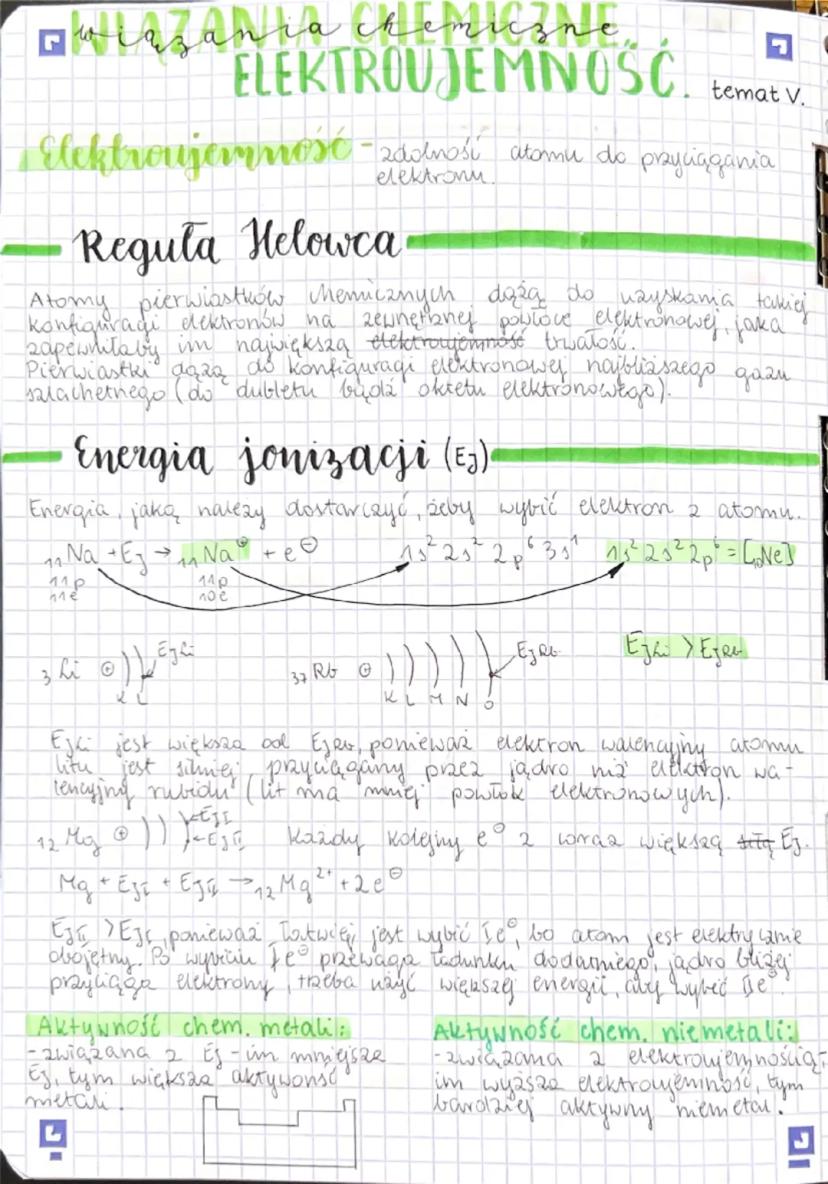 WIĄZANIA CHEMICZNE
wiązania chemiczne
ELEKTROUJEMNOŚĆ.
temat V.
Elektroujemność - zdolność atomu do przyciągania
elektronu.
Reguła Helowca
Atomy pierwiastków chemicznych dążą do uzyskania takiej
konfiguracji elektronów na zewnętrznej powłoce elektronowej, jaka
zapewniłaby im największą elektroujemność trwałość.
Pierwiastki dążą do konfiguracji elektronowej najbliższego gazu
szlachetnego (do dubletu bądź oktetu elektronowego).
Energia jonizacji (EJ)
Energia, jaką należy dostarczyć, żeby wybić elektron z atomu.
₁₁Na + EJ → ₁₁Na⊕ + e⊖ 1s² 2s² 2p⁶ 3s¹ 1s² 2s² 2p⁶ = [₁₀Ne]
11p 11p
11e 10e
₃Li ⊕ ) ) EJLi ₃₇Rb ⊕ ) ) ) ) ) EJRb EJLi > EJRb
K L K L M N O
EJLi jest większa od EJRb, ponieważ elektron walencyjny atomu
litu jest silniej przyciągany przez jądro niż elektron wa-
lencyjny rubidu (lit ma mniej powłok elektronowych).
←EJI
₁₂Mg ⊕ ) ) ) ←EJII Każdy kolejny e⊖ z coraz większą siłą EJ.
Mg + EJI + EJII → ₁₂Mg²⁺ + 2e⊖
EJII > EJI, ponieważ łatwiej jest wybić Ie⊖, bo atom jest elektrycznie
obojętny. Po wybiciu Ie⊖ przewaga ładunku dodatniego, jądro bliżej
przyciąga elektrony, trzeba użyć większej energii, aby wybić IIe⊖.
Aktywność chem. metali:
- związana z EJ - im mniejsza
EJ, tym większa aktywność
metali.
Aktywność chem. niemetali:
- związana z elektroujemnością -
im wyższa elektroujemność, tym
bardziej aktywny niemetal.